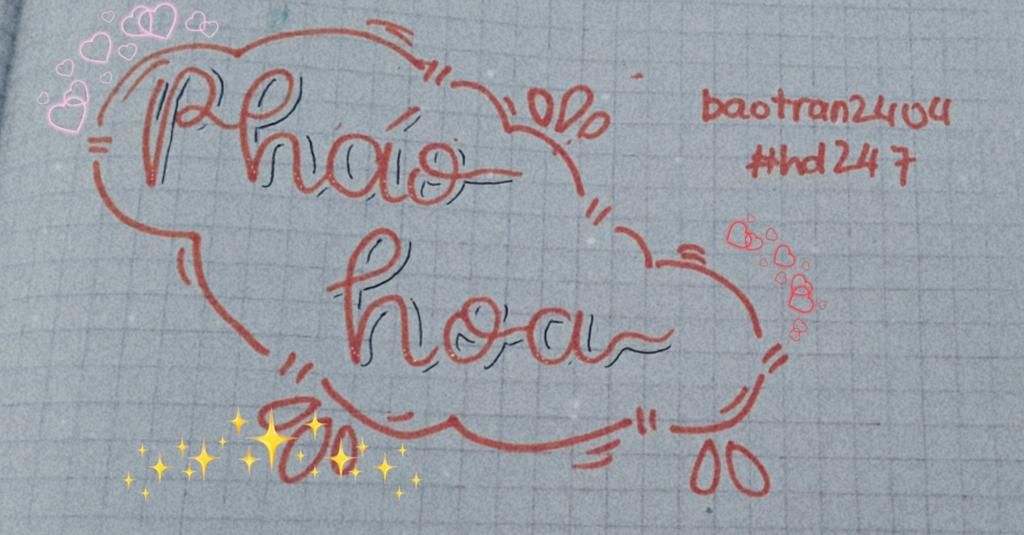 Pháo
hoa
baotran2404
#hd247